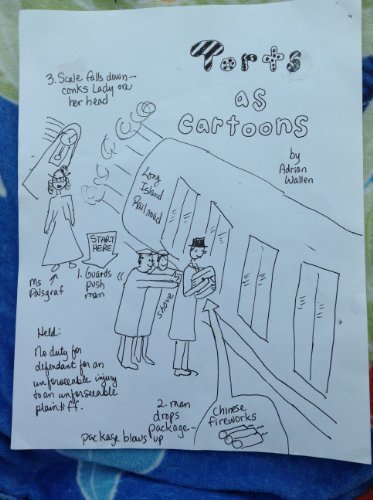 Torts
as
Cartoons
by
Adrian
Wallen
3. Scale falls down—
conks Lady on
her head
Long
Island
Railroad
START
HERE
1. Guards
push
man
Ms
Palsgraf
shove
Held:
No duty for
defendant for an
unforseeable injury
to an unforseeable
plaintiff.
2. man
drops
package
Chinese
fireworks
package blows up